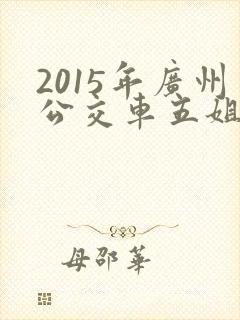 2015年廣州
公交車五姐
母邵華